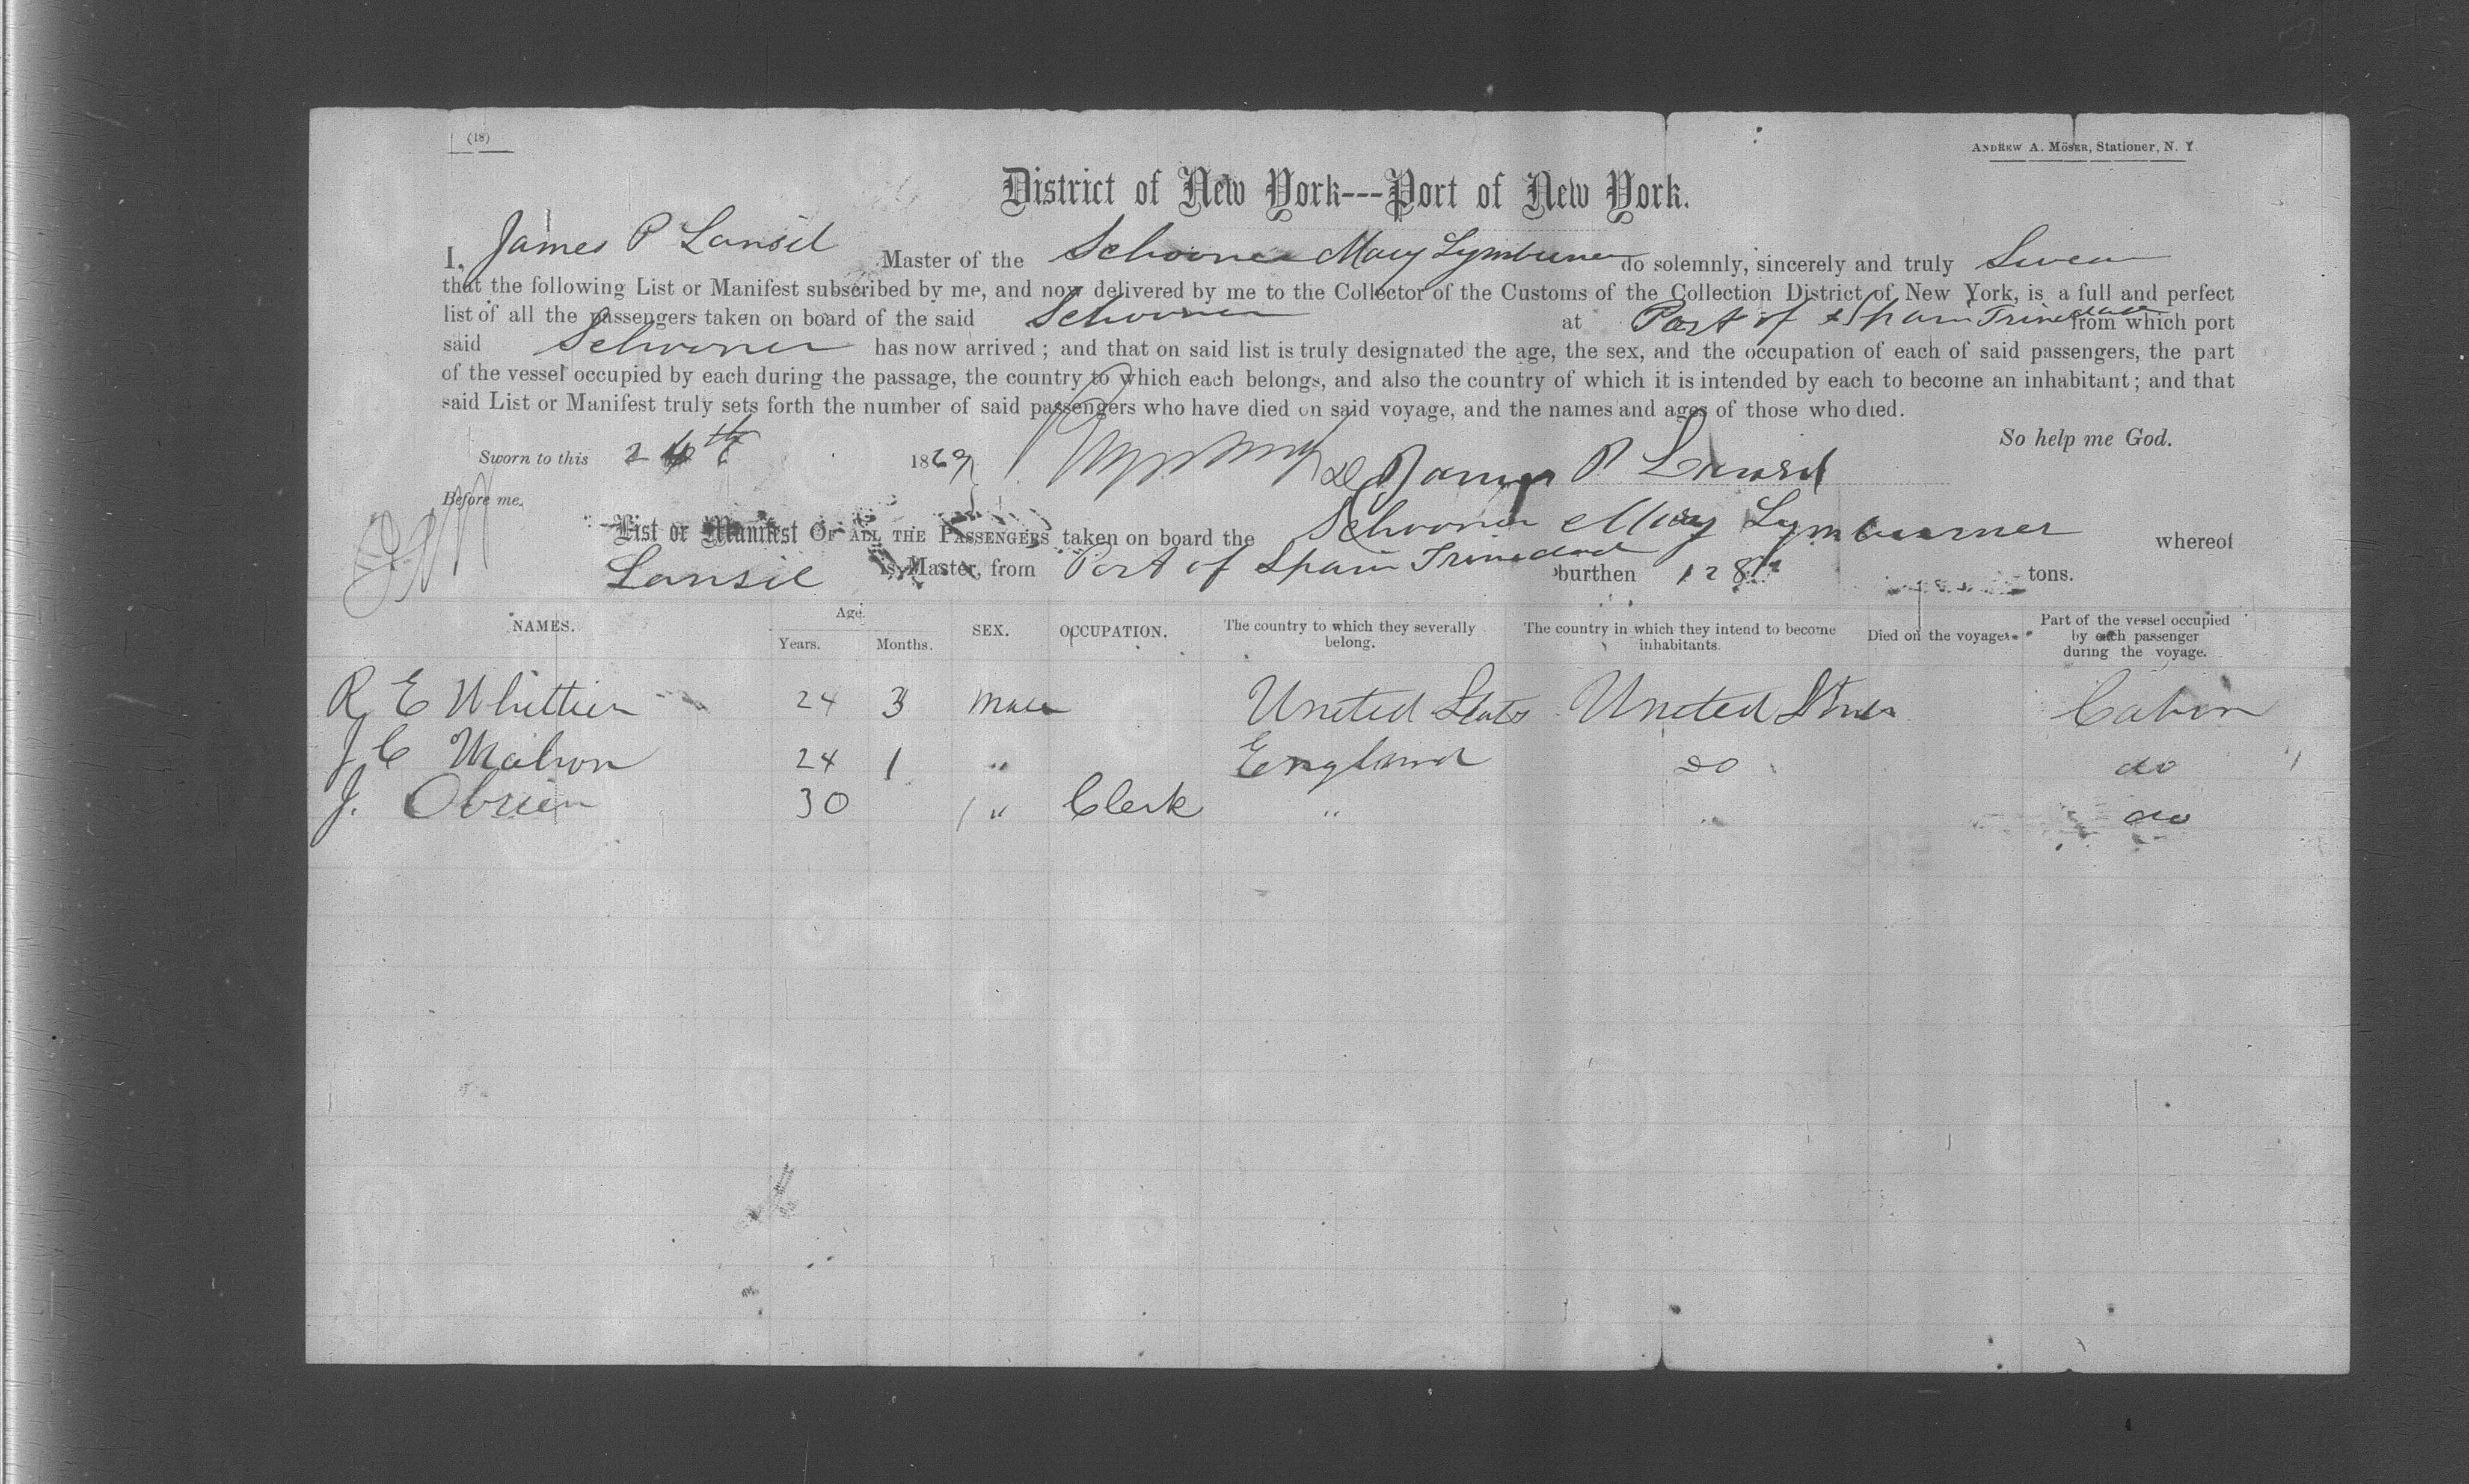 (18)
ANDREW A. MÖSER, Stationer, N. Y.
District of New York---Port of New York.
I, James P Lansil Master of the Schooner Mary Lymburner do solemnly, sincerely and truly Swear
that the following List or Manifest subscribed by me, and now delivered by me to the Collector of the Customs of the Collection District of New York, is a full and perfect
list of all the passengers taken on board of the said Schooner at Port of Spain Trinedad from which port
said Schooner has now arrived; and that on said list is truly designated the age, the sex, and the occupation of each of said passengers, the part
of the vessel occupied by each during the passage, the country to which each belongs, and also the country of which it is intended by each to become an inhabitant; and that
said List or Manifest truly sets forth the number of said passengers who have died on said voyage, and the names and ages of those who died.
So help me God.
Sworn to this 24th 1869 James P Lansil
Before me,
List or Manifest OF ALL THE PASSENGERS taken on board the Schooner Mary Lymburner whereof
Lansil is Master, from Port of Spain Trinedad burthen 128 tons.
NAMES. Age. Years. Months. SEX. OCCUPATION. The country to which they severally belong. The country in which they intend to become inhabitants. Died on the voyage. Part of the vessel occupied by each passenger during the voyage.
R E Whittier 24 3 Male United States United States Cabin
J C 24 1 " England do do
J. Obrien 30 " Clerk " " do